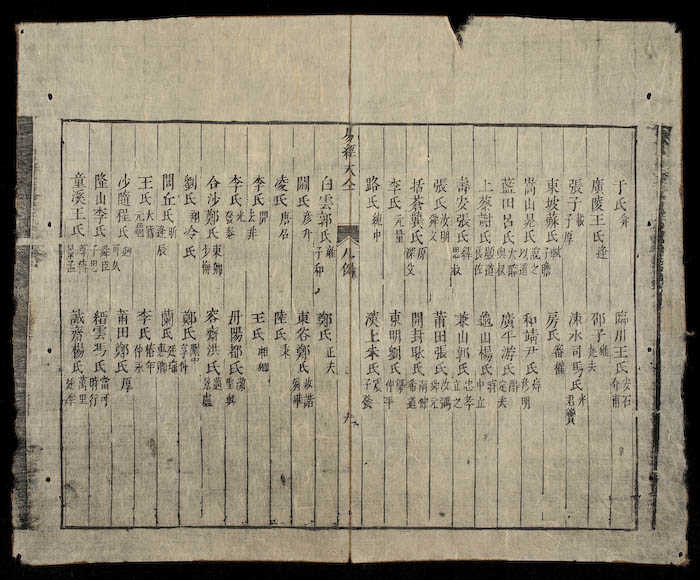 于氏弇　臨川王氏安石介甫
廣陵王氏逢　邵子雍堯夫
張子載子厚　涑水司馬氏光君實
東坡蘇氏軾子瞻　房氏審權
嵩山晁氏說之以道　和靖尹氏焞彥明
藍田呂氏大臨與叔　廣平游氏酢定夫
上蔡謝氏良佐顯道　龜山楊氏時中立
壽安張氏繹思叔　兼山郭氏忠孝立之
張氏汝明舜文　莆田張氏汝弼舜元
括蒼龔氏原深父　開封耿氏南仲希道
李氏元量　東明劉氏槩仲平
路氏純中　漢上朱氏震子發
易經大全　凡例　九
白雲郭氏雍子和　鄭氏正夫
閻氏彥升　東谷鄭氏汝諧舜舉
凌氏唐石　陸氏秉
李氏開去非　王氏相卿
李氏光泰發　丹陽都氏潔聖與
合沙鄭氏東卿少梅　容齋洪氏邁景盧
劉氏翔　鄭氏剛中亨仲
閭丘氏昕逢辰　蘭氏廷瑞惠卿
王氏大寶元龜　李氏椿年仲永
沙隨程氏迥可久　莆田鄭氏厚
隆山李氏舜臣子思　縉雲馮氏當可時行
童溪王氏宗傳景孟　誠齋楊氏萬里廷秀